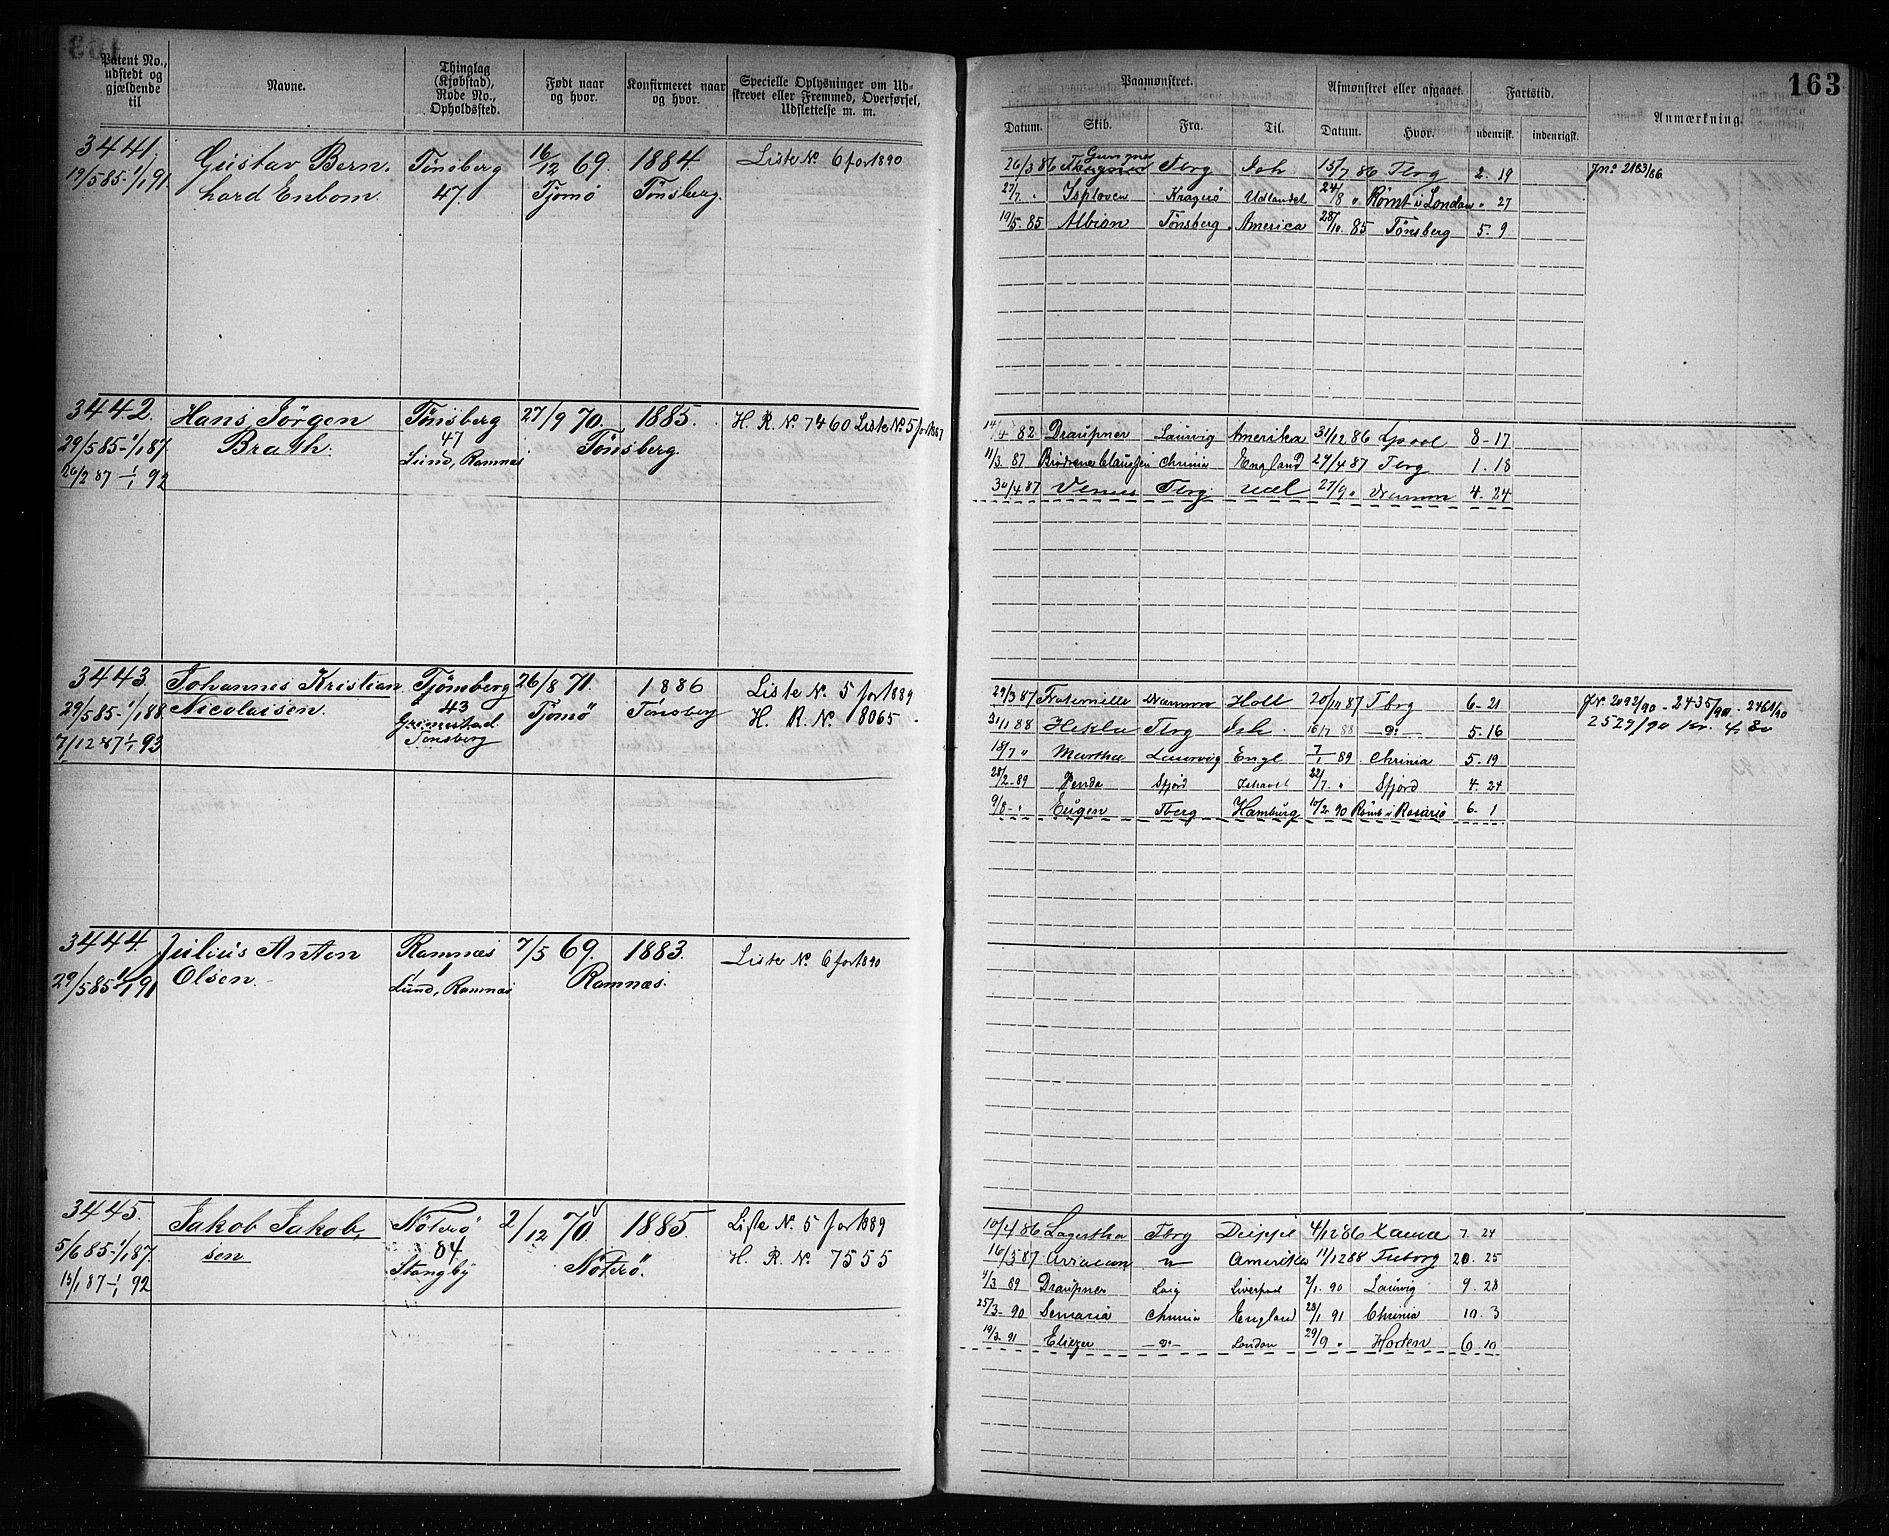 163
Patent No., udstedt og gjældende til
Navne.
Thinglag (Kjøbstad), Rode No., Opholdssted.
Født naar og hvor.
Konfirmeret naar og hvor.
Specielle Oplysninger om Udskrevet eller Fremmed, Overførsel, Udslettelse m. m.
Paamønstret.
Afmønstret eller afgaaet.
Fartstid.
Anmærkning.
Datum. Skib. Fra. Til. Datum. Hvor. udenrigsk. indenrigsk.
3441. Gustav Bern- Tönsberg 16/12 69. 1884. Liste No 6 for 1890
19/5 85-1/1 91 hard Enbom. 47. Tjømø Tönsberg.
26/3 86 Gungner Tbrg Ish. 15/7 86 Tbrg 2. 19 Jno 2183/86
27/7 " Isploven Kragerö Udlandet 24/8 " Römt i London " 27
19/5. 85 Albion Tönsberg America 28/10 85 Tönsberg 5. 9
3442. Hans Jörgen Tönsberg 27/9 70. 1885. H. R. No 7460 Liste No 5 for 1887
29/5 85-1/1 87 Brath. 47 Tönsberg.
26/2 87 - 1/1 92 Lund, Ramnæs
14/4 82 Draupner Laurvig Amerika 31/12 86 Lpool 8-17
11/3. 87 Brödrene Claussen Chrinia England 29/4 87 Tbrg 1. 18
30/4 87 Venus Tbrg udl 27/9 " Drammn 4. 24
3443. Johannes Kristian Tjömsberg 26/8 71. 1886 Liste No 5 for 1889
29/5 85-1/1 88 Nicolaisen. 43 Tjømø Tönsberg H. R. No 8065.
7/12 87 1/1 93 Grimestad Tönsberg
29/3 87 Fraternitte Drammn Holl 20/10 87 Tbrg 6-21 Jr. 2092/90 - 2435/90 - 2461/90
31/1 88 Hekla Tbrg Ish. 16/7 88 — do — 5. 16 2529/90 Kr. 4,80
18/7 " Martha Laurvig Engl 7/1 89 Chrinia 5. 19
28/2 - 89 Penda Sfjord Ishavet 22/7. " Sfjord 4. 24
9/8 - " Eugen Tberg Hamburg 10/2. 90 Römt i Rosario 6. 1
3444. Julius Anton Ramnæs 7/5 69. 1883. Liste No 6 for 1890
29/5 85-1/1 91 Olsen. 1 Ramnæs.
Lund, Ramnæs
3445. Jakob Jakob- Nöterö 2/12 70. 1885. Liste No 5 for 1889
5/6 85-1/1 87. sen 84. Nöterö. H. R. No 7555
15/1 87 - 1/1 92 Stangeby
10/4 86 Lagertha Tbrg Deippe 4/12 86 7. 24
16/3 87 Arracan " Amerika 11/12 88 20. 25
4/3 89 Draupner Lvig Liverpool 2/1. 90 Laurvig 9. 28
25/3 - 90 Chrinia England 28/1 91 Chrinia 10. 3
19/3. 91 Eliezer — do — London 29/9 " Horten 6. 10